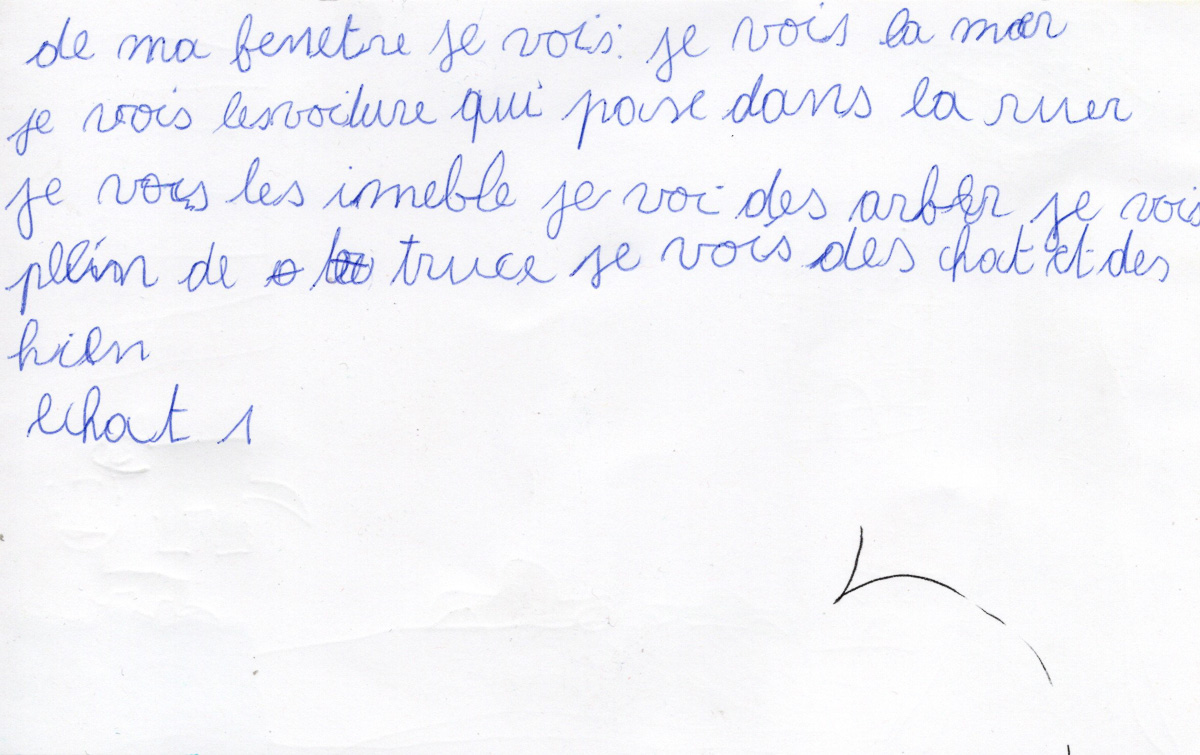 de ma fenetre je vois: je vois la mer
je vois lesvoiture qui pase dans la ruer
je vois les imeble je voi des arber je vois
plein de truce je vois des chat et des
hien
lchat 1